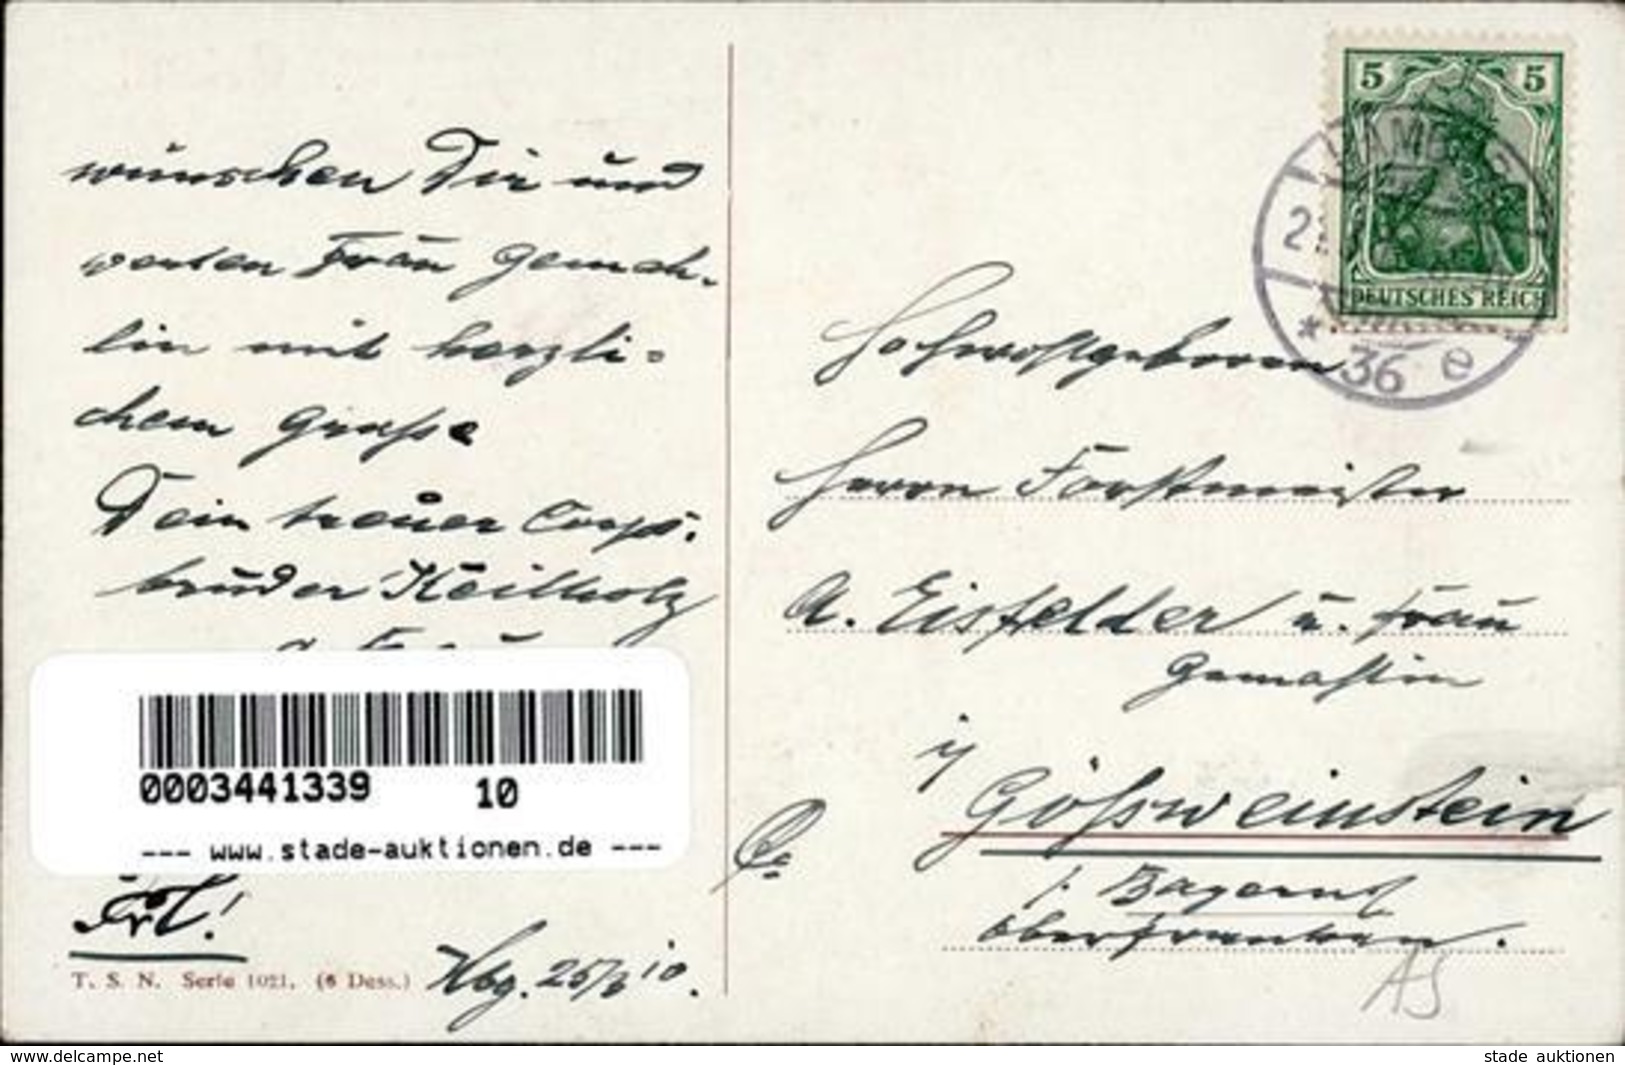 wünschen Dir und
werten Frau Gemah-
lin mit herzli-
chem Gruße
Dein treuer Corps-
bruder Keilholz
0003441339 10
--- www.stade-auktionen.de ---
T. S. N. Serie 1021. (6 Dess.)
Hbg. 25/ 10.
5 5
DEUTSCHES REICH
* 36 e
Hochwohlgeboren
Herrn Forstmeister
A. Eisfelder u. Frau
Gemahlin
i/
Gößweinstein
i. Bayern
Oberfranken.
AS
www.delcampe.net
stade auktionen